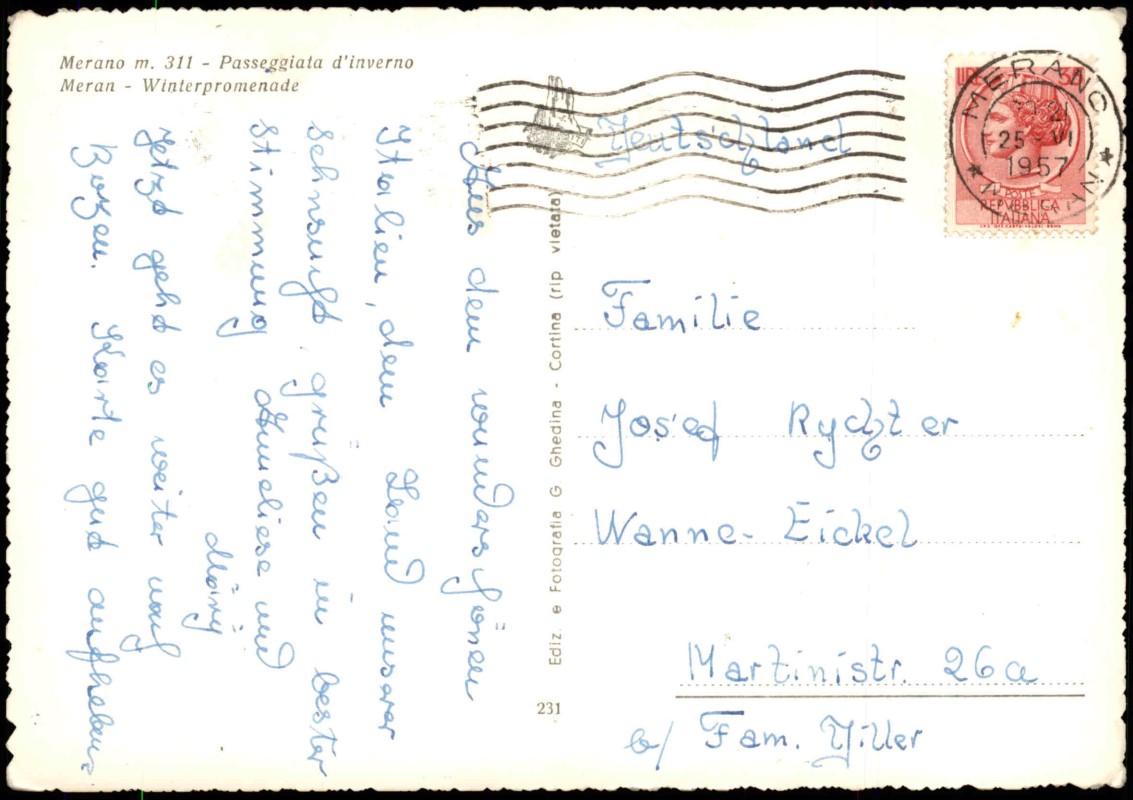 Merano m. 311 - Passeggiata d'inverno
Meran - Winterpromenade
Aus dem wunderschönen
Italien, dem Land unserer
Sehnsucht grüßen in bester
Stimmung Anneliese und
Mary
Jetzt geht es weiter nach
Bozen. Karte gut aufheben.
Ediz. e Fotografia G. Ghedina - Cortina (rip vietata)
231
MERANO
25 VI
1957
POSTE
REPVBBLICA
ITALIANA
Deutschland
Familie
Josef Rychter
Wanne-Eickel
Martinistr. 26a
b/ Fam.